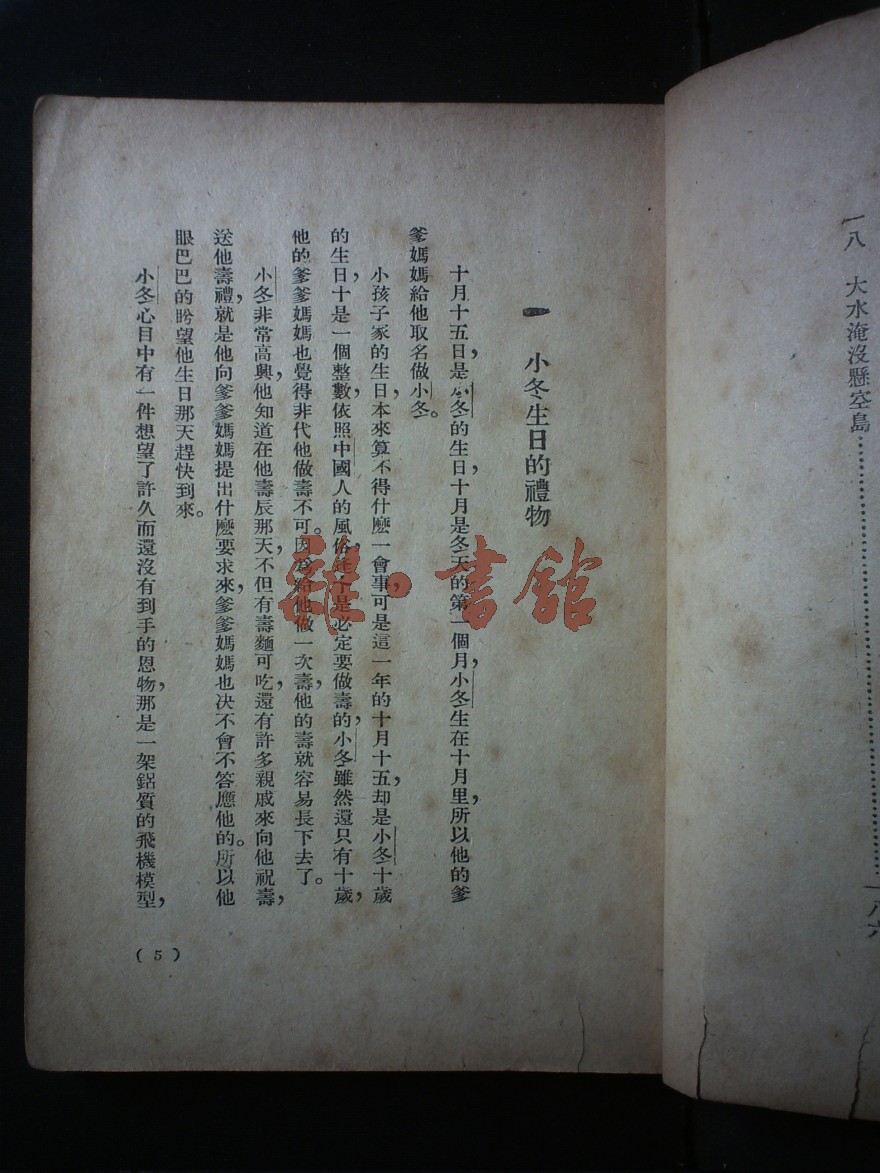 一八　大水淹沒懸空島……………………一八六
一　小冬生日的禮物
十月十五日，是小冬的生日，十月是冬天的第一個月，小冬生在十月里，所以他的爹
爹媽媽給他取名做小冬。
小孩子家的生日，本來算不得什麽一會事，可是這一年的十月十五，却是小冬十歲
的生日，十是一個整數，依照中國人的風俗，是必定要做壽的，小冬雖然還只有十歲，
他的爹爹媽媽也覺得非代他做壽不可。因爲給他做一次壽，他的壽就容易長下去了。
小冬非常高興，他知道在他壽辰那天，不但有壽麵可吃，還有許多親戚來向他祝壽，
送他壽禮，就是他向爹爹媽媽提出什麽要求來，爹爹媽媽也决不會不答應他的。所以他
眼巴巴的盼望他生日那天趕快到來。
小冬心目中有一件想望了許久而還沒有到手的恩物，那是一架鋁質的飛機模型，
（5）
雜·書館